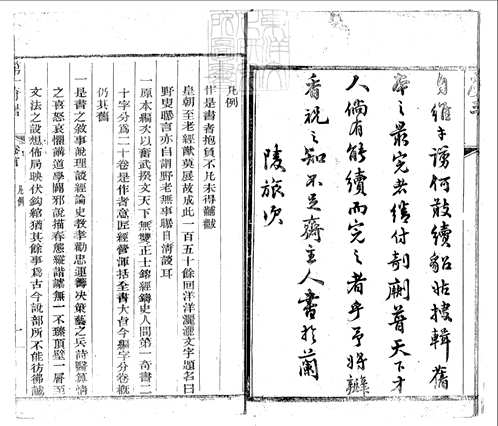 自維譾何敢續貂姑搜輯舊
本之最完者繕付剞劂普天下才
人倘有能續而完之者乎予將瓣
香祝之知不足齋主人書於蘭
陵旅次
凡例
作是書者抱負不凡未得黼黻
皇朝至老經猷莫展故成此一百五十餘回洋洋灑灑文字題名曰
野叟曝言亦自謂野老無事曝日清談耳
一原本編次以奮武揆文天下無雙正士鎔經鑄史人間第一奇書二
十字分爲二十卷是作者意匠經營渾括全書大旨今編字分卷概
仍其舊
一是書之敘事說理談經論史教孝勸忠運籌決策藝之兵詩醫算情
之喜怒哀懼講道學闢邪說描春態縱諧謔無一不臻頂壁一層至
文法之設想佈局映伏鈎綰猶其餘事爲古今說部所不能彷彿誠
第一奇書 卷首 凡例 一